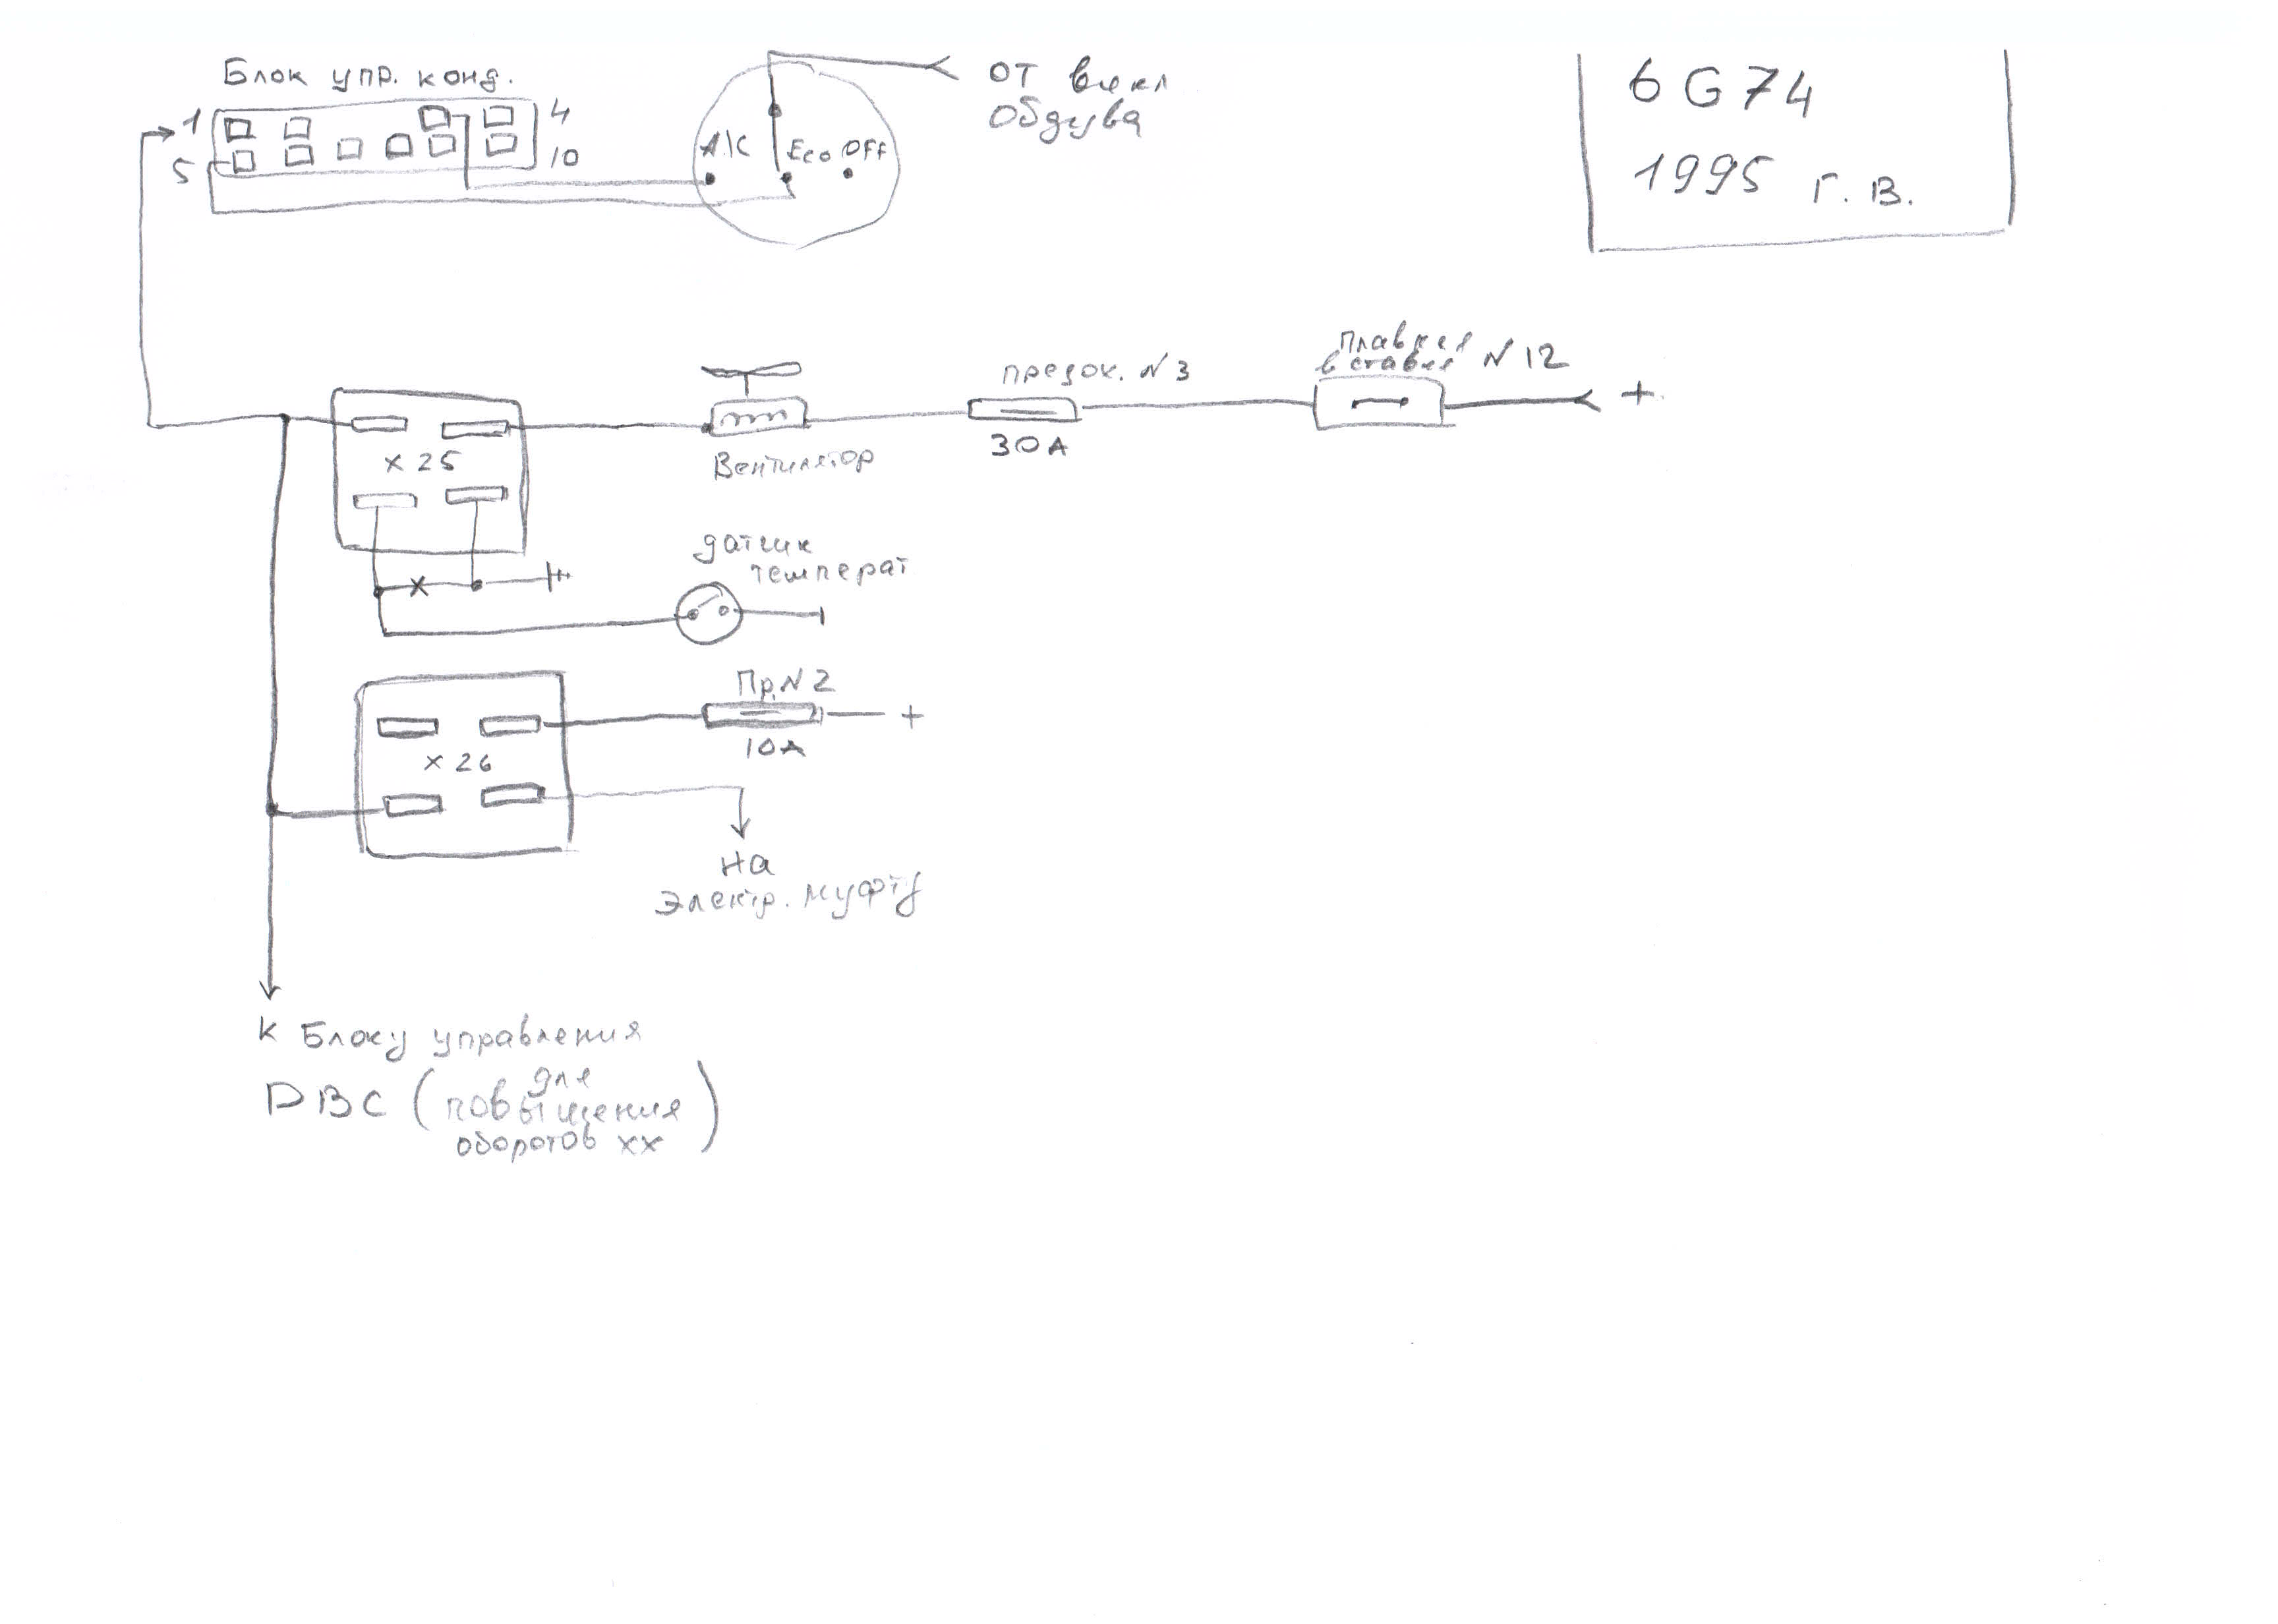 Блок упр. конд.
1
4
5
10
А/С Eco Off
от вкл
обдува
6G74
1995 г. в.
предох. N 3
30 А
плавкая
вставка N 12
+
х 25
Вентилятор
датчик
температ
Пр. N 2
10А
+
х 26
на
электр. муфту
к Блоку управления
DВС (для
повышения
оборотов хх)